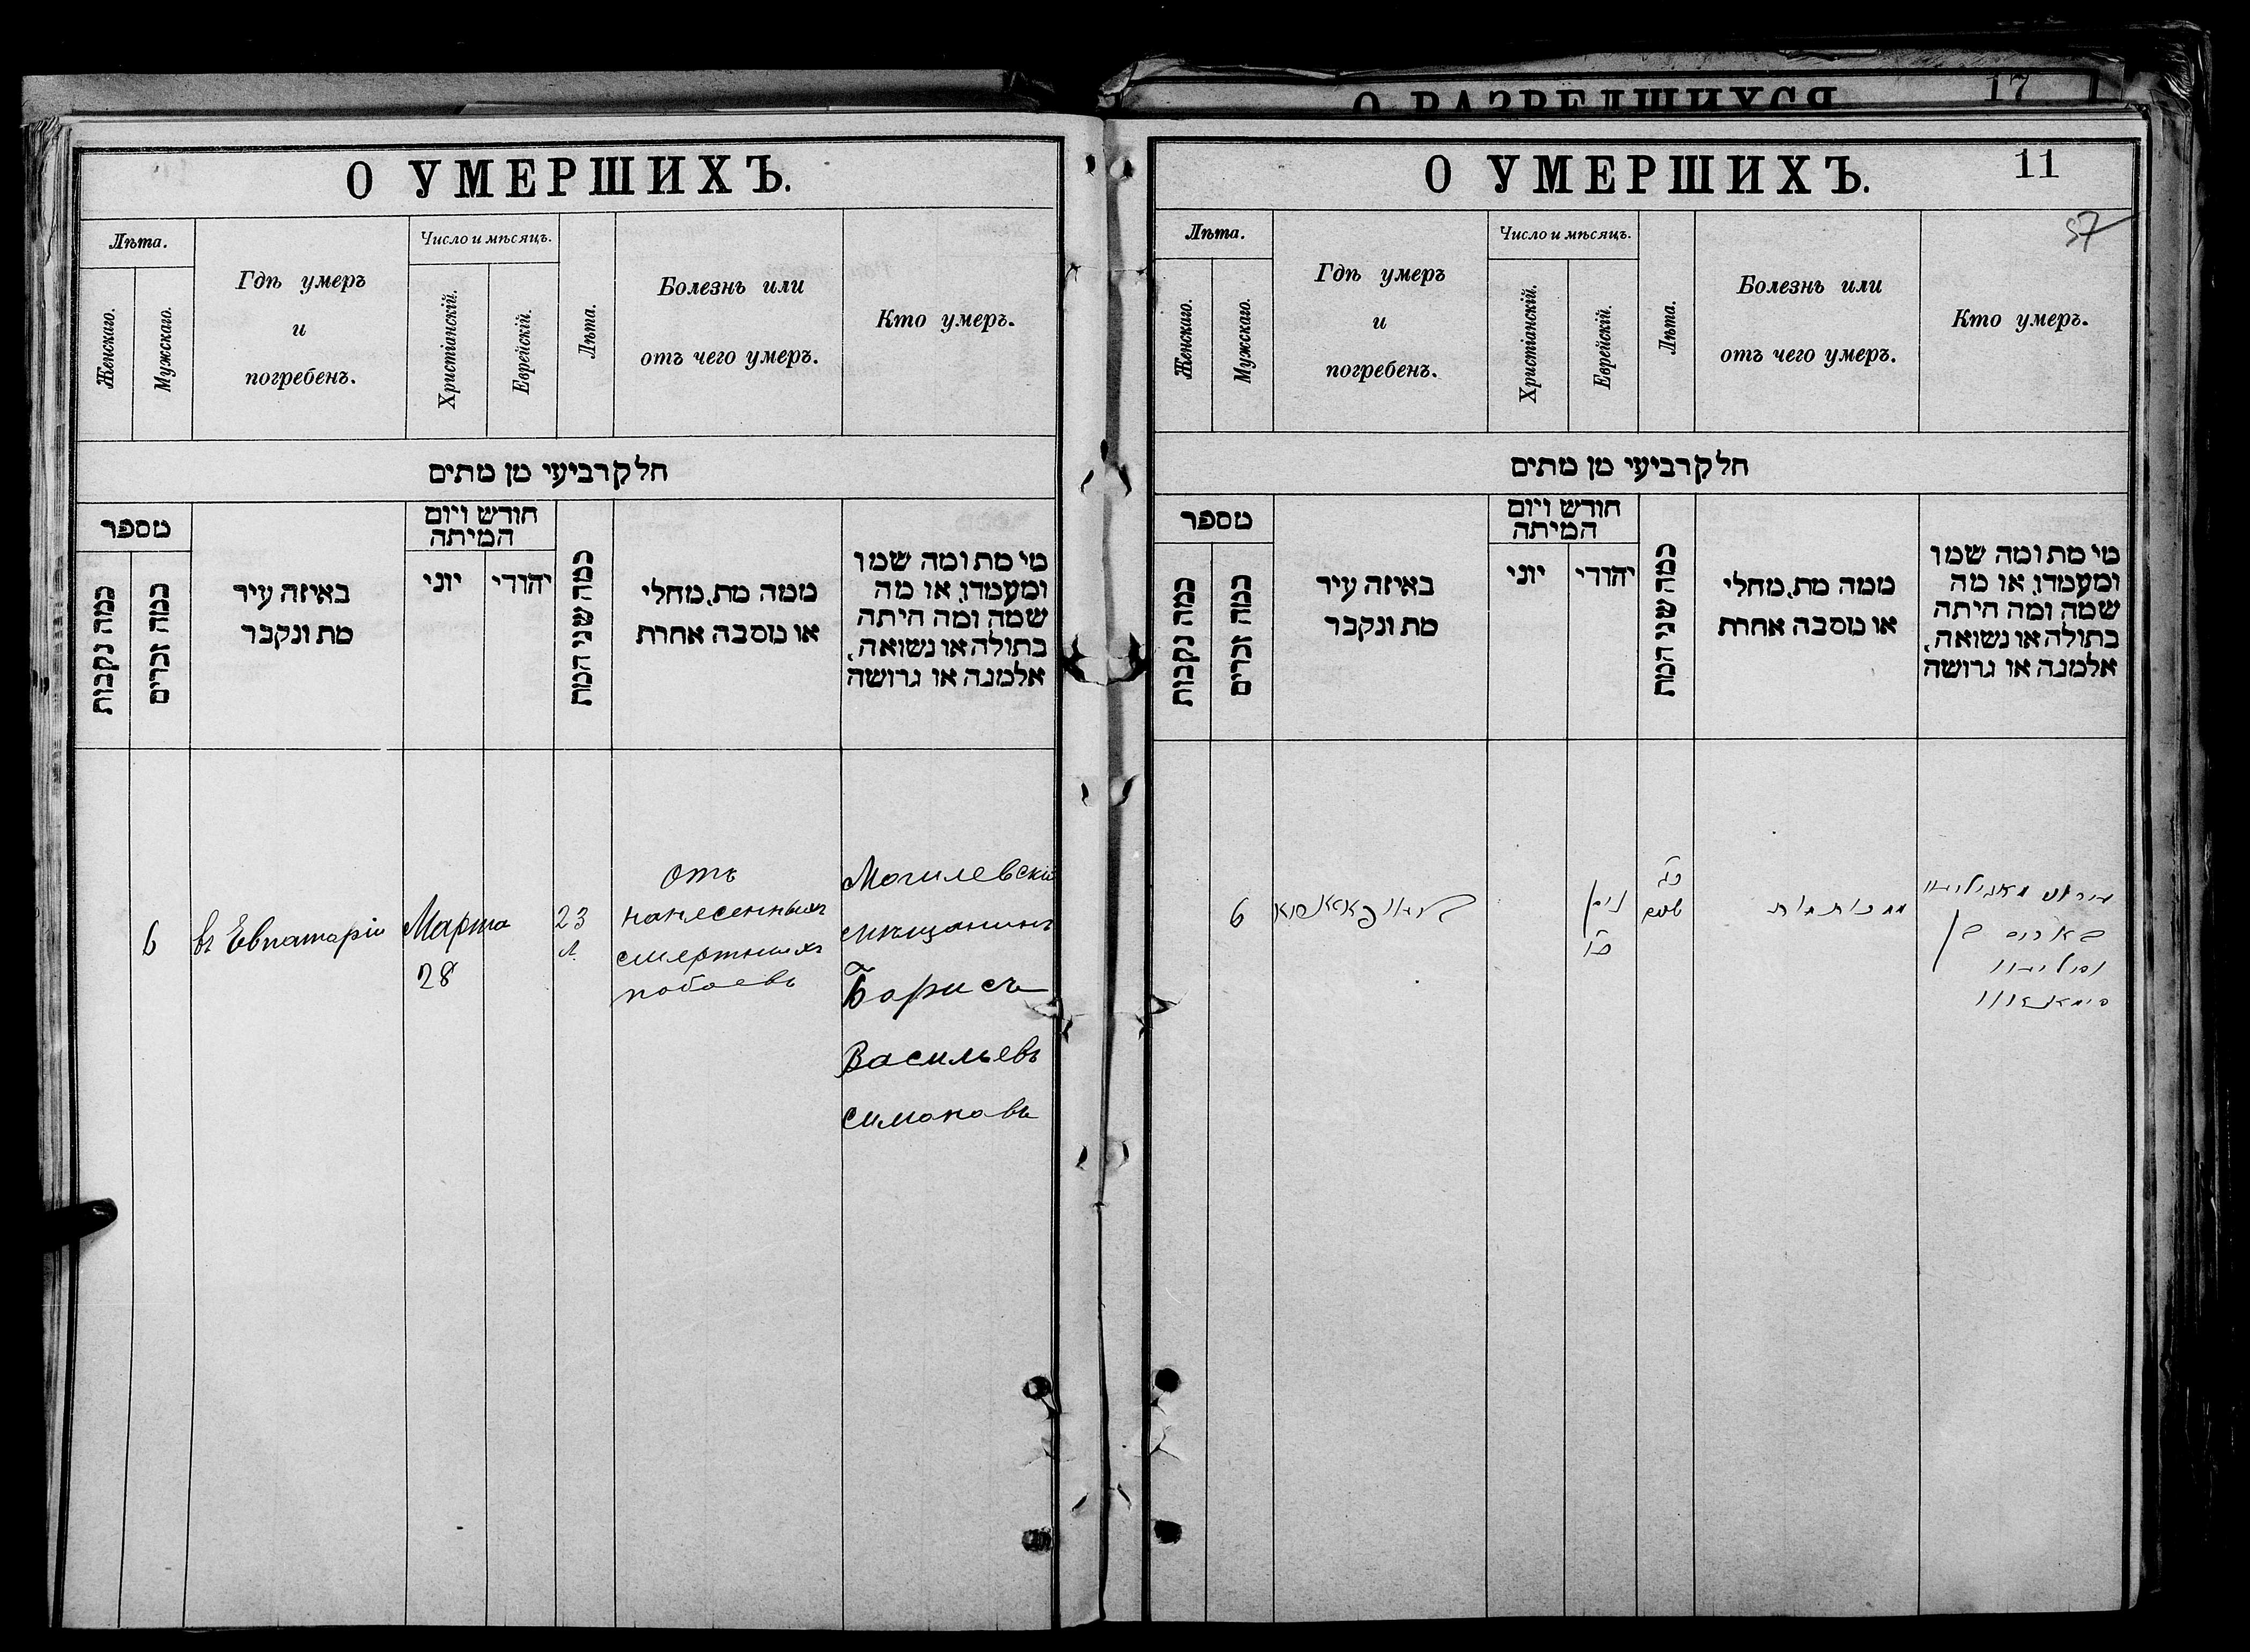 О УМЕРШИХЪ.
Лѣта.
Женскаго.
Мужскаго.
Гдѣ умеръ
и
погребенъ.
Число и мѣсяцъ.
Христіанскій.
Еврейскій.
Лѣта.
Болезнь или
отъ чего умеръ.
Кто умеръ.
חלק רביעי מן מתים
מספר
כמה נקבות
כמה זכרים
באיזה עיר
מת ונקבר
חודש ויום
המיתה
יוני
יהודי
כמה שני המת
ממה מת, מחלי
או מסבה אחרת
מי מת ומה שמו
ומעמדו, או מה
שמה ומה היתה
בתולה או נשואה,
אלמנה או גרושה
6
въ Евпаторіи
Марта
28
23
л.
отъ
нанесенныхъ
смертныхъ
побоевъ
Могилевскій
мѣщанинъ
Борисъ
Васильевъ
Симоновъ
О РАЗВЕДШИХСЯ
17
О УМЕРШИХЪ.
11
57
Лѣта.
Женскаго.
Мужскаго.
Гдѣ умеръ
и
погребенъ.
Число и мѣсяцъ.
Христіанскій.
Еврейскій.
Лѣта.
Болезнь или
отъ чего умеръ.
Кто умеръ.
חלק רביעי מן מתים
מספר
כמה נקבות
כמה זכרים
באיזה עיר
מת ונקבר
חודש ויום
המיתה
יוני
יהודי
כמה שני המת
ממה מת, מחלי
או מסבה אחרת
מי מת ומה שמו
ומעמדו, או מה
שמה ומה היתה
בתולה או נשואה,
אלמנה או גרושה
6
ניסן
כג
שנה
ממכות מות
בן